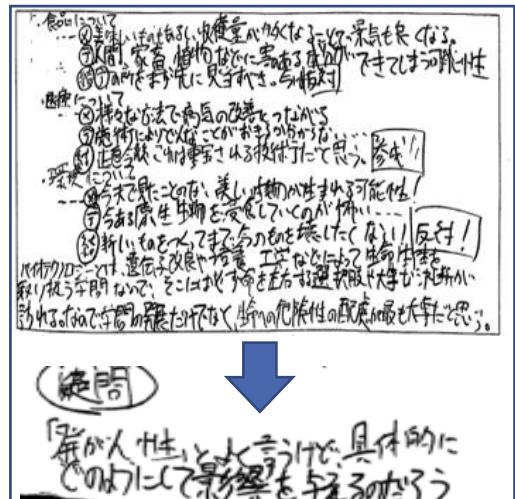 ・食品について
・・・㋱美味しいものもあるし、収穫量が多くなることで景気も良くなる。
㋢人間、家畜、植物などに害のある成分ができてしまう可能性
の所をまず先に見直すべき。反対
・医療について
・・・㋱様々な方法で病気の改善へとつながる
㋢技術によりどんなことがおきるか分からない・・・・
これは重宝される技術だと思う。賛成!!
・環境について
・・・㋱今まで見たことのない、美しい生物が生まれる可能性!
㋢今ある原生生物を変化していくのが怖い・・・
新しいものをつくってまで、今のものを壊したくない! 反対!
バイオテクノロジーとは、遺伝子改良や培養、工学などによって生命体を
取り扱う学問なので、そこには必ず命を左右する選択肢や大事な決断が
迫られる。なので学問の発展だけでなく、生命への危険性の配慮が最も大事だと思う。
疑問
「発がん性」とよく言うけど、具体的に
どのようにして影響を与えるのだろう